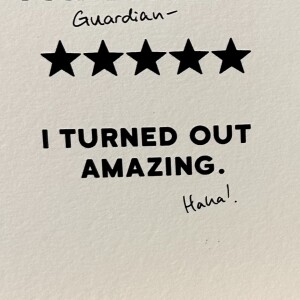 Guardian-
★★★★★
I TURNED OUT
AMAZING.
Haha!